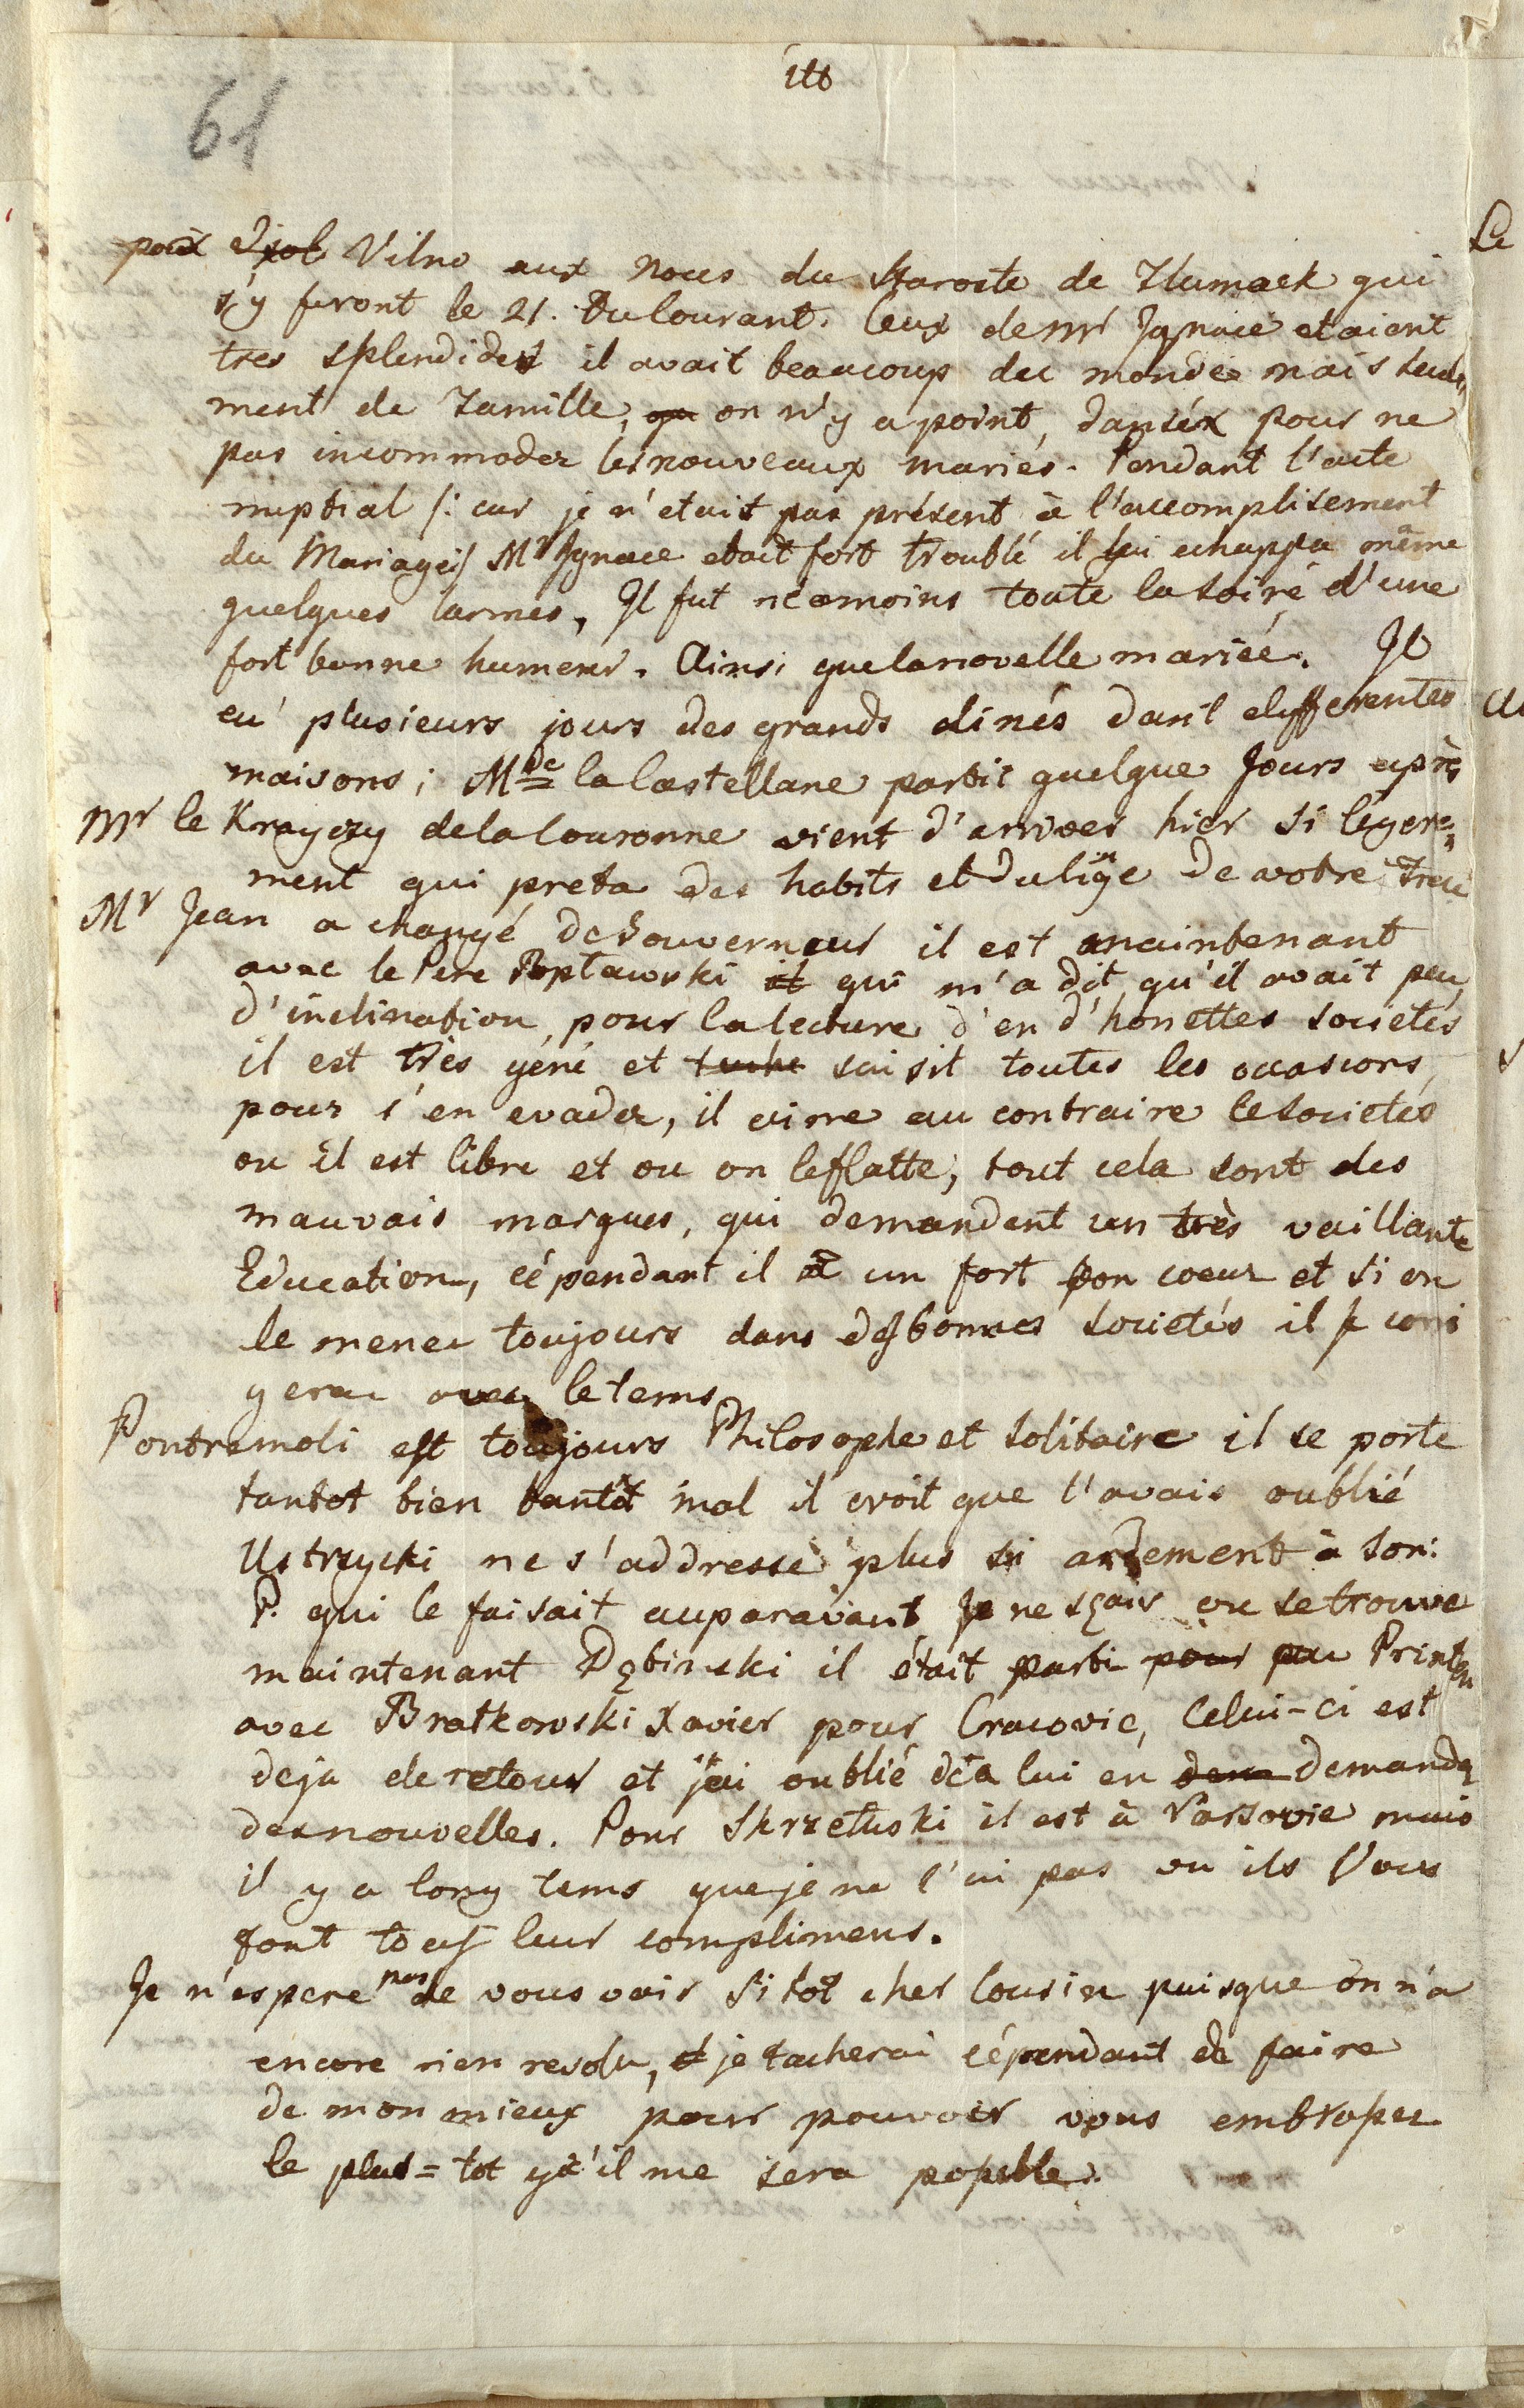 61
pour Vilno aux noces du Staroste de Tlumack qui
s'y feront le 21. Du Courant. Ceux de Mr Jgnace etaient
tres splendides il avait beaucoup du monde mais seule=
ment de Famille, on n'y a point, dansé pour ne
pas incommoder les nouveaux mariés. Pendant l'acte
nuptial /: car je n'etait pas présent à l'accomplisement
du Mariage :/ Mr Jgnace etait fort troublé il lui echappa même
quelques larmes, Jl fut néamoins toute la soiré d'une
fort bonne humeur. Ainsi que la novelle mariée. Jl
eu plusieurs jours des grands dinés dans differentes
maisons; Mde la Castellane partit quelque Jours après
Mr le Krayczy de la Couronne vient d'arriver hier si légere=
ment qui preta des habits et du linge de votre Frere
Mr Jean a changé de Gouverneur il est maintenant
avec le Pere Popławski qui m'a dit qu'il avait peu
d'inclination pour la lecture d'en d'honettes societés
il est très géné et saisit toutes les occasions,
pour s'en evader, il aime au contraire le societés
ou il est libre et ou on le flatte, tout cela sont des
mauvais marques, qui demandent un très vaillante
Education, cépendant il a un fort bon coeur et si on
le menec toujours dans des bonnes societés il se corri
gera avec le tems
Pontremoli est toujours Philosophe et solitaire il se porte
tantot bien tantôt mal il croit que l'avais oublié
Ustrzycki ne s'addresse plus si ardement à son:
P. qui le faisait auparavant Je ne sçais ou se trouve
maintenant Dębinski il était parti pour au Printem
avec Bratkowski Xavier pour Cracovie, Celui-ci est
deja de retour et j'ai oublié de lui en demander
des nouvelles. Pour Skrzetuski il est à Varsovie mais
il y a long tems que je ne l'ai pas vu ils Vous
font tous leur complimens.
Je n'espere pas de vous voir si tôt cher Cousin puisque on n'a
encore rien resolu, et je tacherai cépendant de faire
de mon mieux pour pouvoir vous embrasser
le plus=tot qu'il me sera possible.